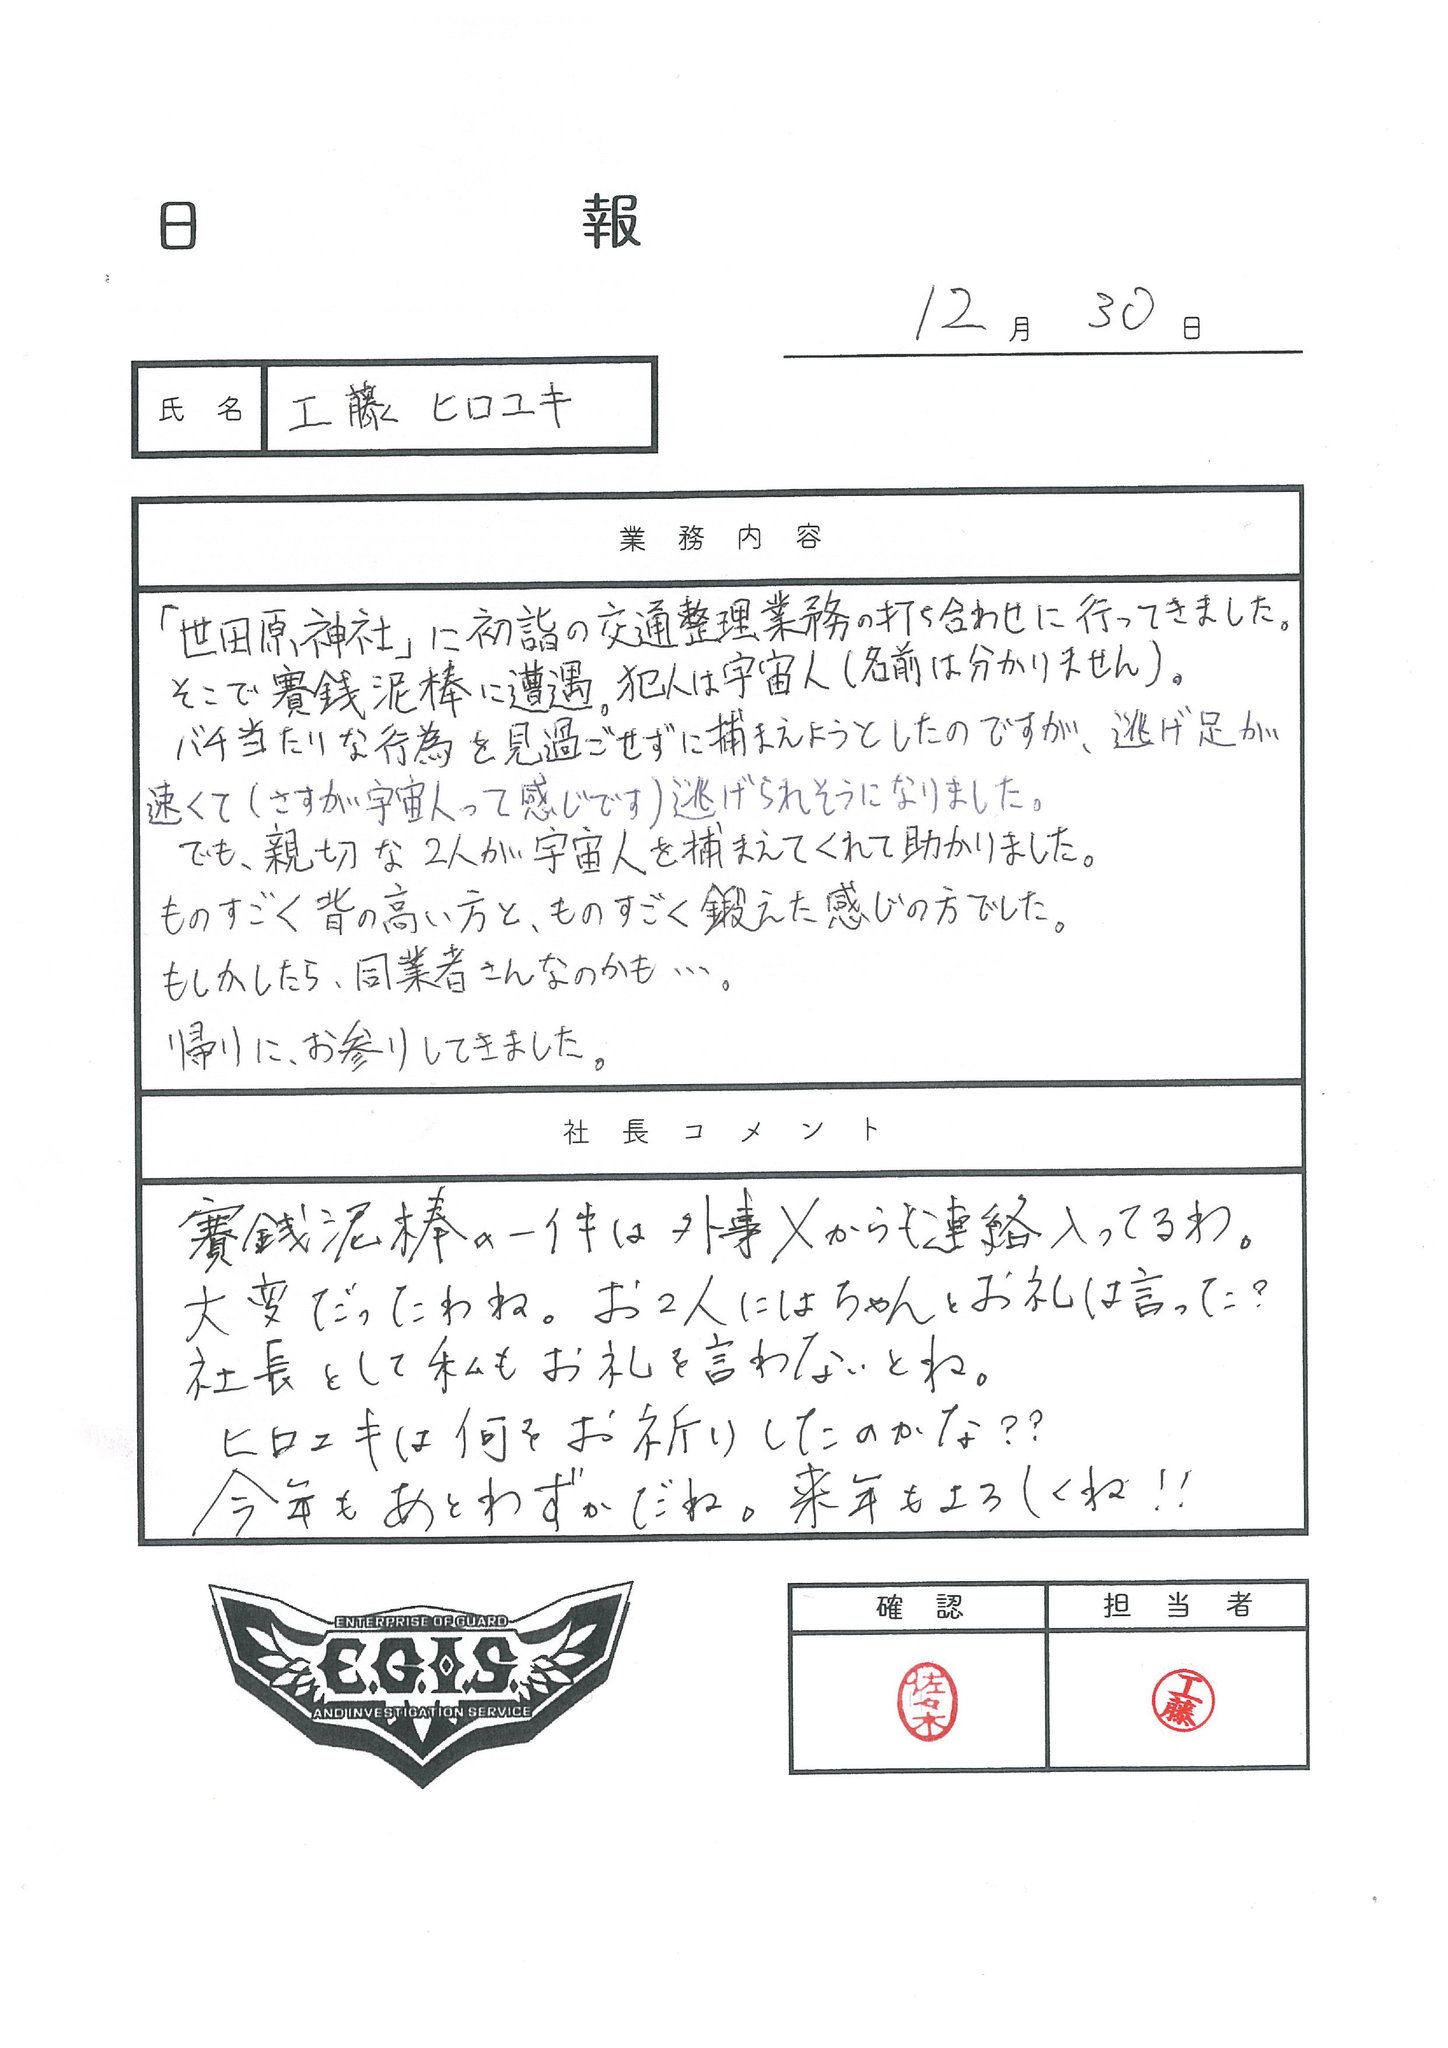 日報
12月30日
氏名 工藤 ヒロユキ
業務内容
「世田原神社」に初詣の交通整理業務の打ち合わせに行ってきました。
そこで賽銭泥棒に遭遇。犯人は宇宙人(名前は分かりません)。
バチ当たりな行為を見過ごせずに捕まえようとしたのですが、逃げ足が
速くて(さすが宇宙人って感じです)逃げられそうになりました。
でも、親切な2人が宇宙人を捕まえてくれて助かりました。
ものすごく背の高い方と、ものすごく鍛えた感じの方でした。
もしかしたら、同業者さんなのかも…。
帰りに、お参りしてきました。
社長コメント
賽銭泥棒の一件は外事Xからも連絡入ってるわ。
大変だったわね。お2人にはちゃんとお礼は言った?
社長として私もお礼を言わないとね。
ヒロユキは何をお祈りしたのかな??
今年もあとわずかだね。来年もよろしくね!!
ENTERPRISE OF GUARD
E.G.I.S.
AND INVESTIGATION SERVICE
確認 担当者
佐々木 工藤